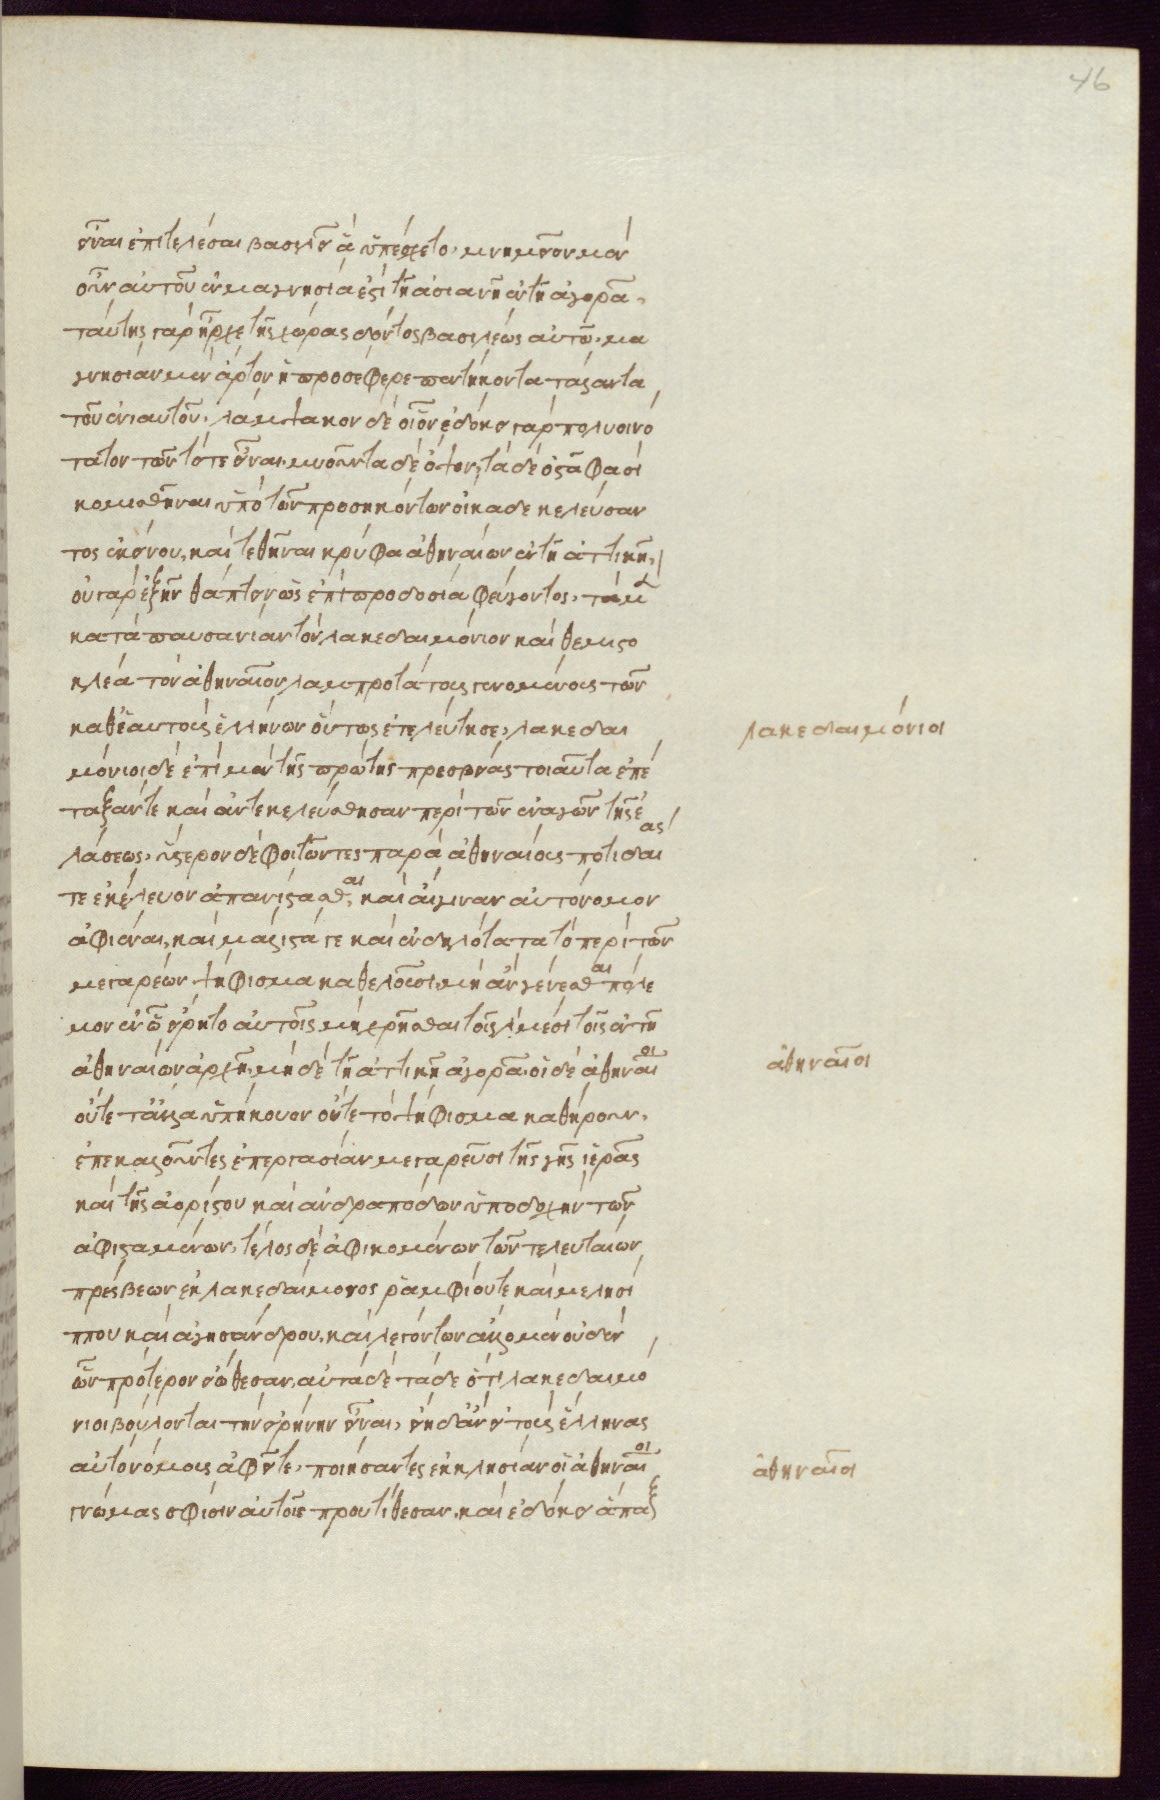 46
εἶναι ἐπιτελέσαι βασιλεῖ ἃ ὑπέσχετο· μνημεῖον μὲν
οὖν αὐτοῦ ἐν μαγνησία ἐστὶ τῆ ἀσιανῆ ἐν τῆ ἀγορᾶ·
ταύτης γὰρ ἦρχε τῆς χώρας δόντος βασιλέως αὐτῶ· μα
γνησίαν μὲν ἄρτον ἣ προσέφερε πεντήκοντα τάλαντα
τοῦ ἐνιαυτοῦ· λάμψακον δὲ οἶνον, ἐδόκει γὰρ πολυοινό
τατον τῶν τότε εἶναι. μυοῦντα δὲ ὄψον, τὰ δὲ ὀστᾶ φασὶ
κομισθῆναι ὑπὸ τῶν προσηκόντων οἴκαδε κελεύσαν
τος ἐκείνου, καὶ τεθῆναι κρύφα ἀθηναίων ἐν τῆ ἀττικῆ,
οὐ γὰρ ἐξῆν θάπτειν ὡς ἐπὶ προδοσία φεύγοντος· τὰ μὲν
κατὰ παυσανίαν τὸν λακεδαιμόνιον καὶ θεμιστο
κλέα τὸν ἀθηναῖον λαμπροτάτους γενομένους τῶν
καθ' ἑαυτοὺς ἑλλήνων οὕτως ἐτελεύτησε, λακεδαι
λακεδαιμόνιοι
μόνιοι δὲ ἐπὶ μὲν τῆς πρώτης πρεσβείας τοιαῦτα ἐπέ
ταξάν τε καὶ ἀντεκελεύσθησαν περὶ τῶν ἐναγῶν τῆς ἐ
λάσεως, ὕστερον δὲ φοιτῶντες παρὰ ἀθηναίους ποτιδαίας
τε ἐκέλευον ἀπανίστασθαι, καὶ αἴγιναν αὐτόνομον
ἀφιέναι, καὶ μάλιστά γε καὶ ἐνδηλότατα τὸ περὶ τῶν
μεγαρέων ψήφισμα καθελοῦσι μὴ ἂν γενέσθαι πόλε
μον ἐν ὧ εἴρητο αὐτοῖς μὴ χρῆσθαι τοῖς λιμέσι τοῖς ἐν τῆ
ἀθηναίων ἀρχῆ, μὴ δὲ τῆ ἀττικῆ ἀγορᾶ. οἱ δὲ ἀθηναῖοι
ἀθηναῖοι
οὔτε τἆλλα ὑπήκουον οὔτε τὸ ψήφισμα καθήρουν,
ἐπικαλοῦντες ἐπεργασίαν μεγαρεῦσι τῆς γῆς ἱερᾶς
καὶ τῆς ἀορίστου καὶ ἀνδραπόδων ὑποδοχὴν τῶν
ἀφισταμένων, τέλος δὲ ἀφικομένων τῶν τελευταίων
πρέσβεων ἐκ λακεδαίμονος ῥαμφίου τε καὶ μελησί
ππου καὶ ἀγησάνδρου, καὶ λεγόντων ἄλλο μὲν οὐδὲν
ὧν πρότερον εἰώθεσαν, αὐτὰ δὲ τάδε ὅτι λακεδαιμό
νιοι βούλονται τὴν εἰρήνην εἶναι, εἴη δ' ἂν εἰ τοὺς ἕλληνας
αὐτονόμους ἀφῆτε, ποιήσαντες ἐκκλησίαν οἱ ἀθηναῖοι
ἀθηναῖοι
γνώμας σφίσιν αὐτοῖς προυτίθεσαν, καὶ ἐδόκει ἅπαξ